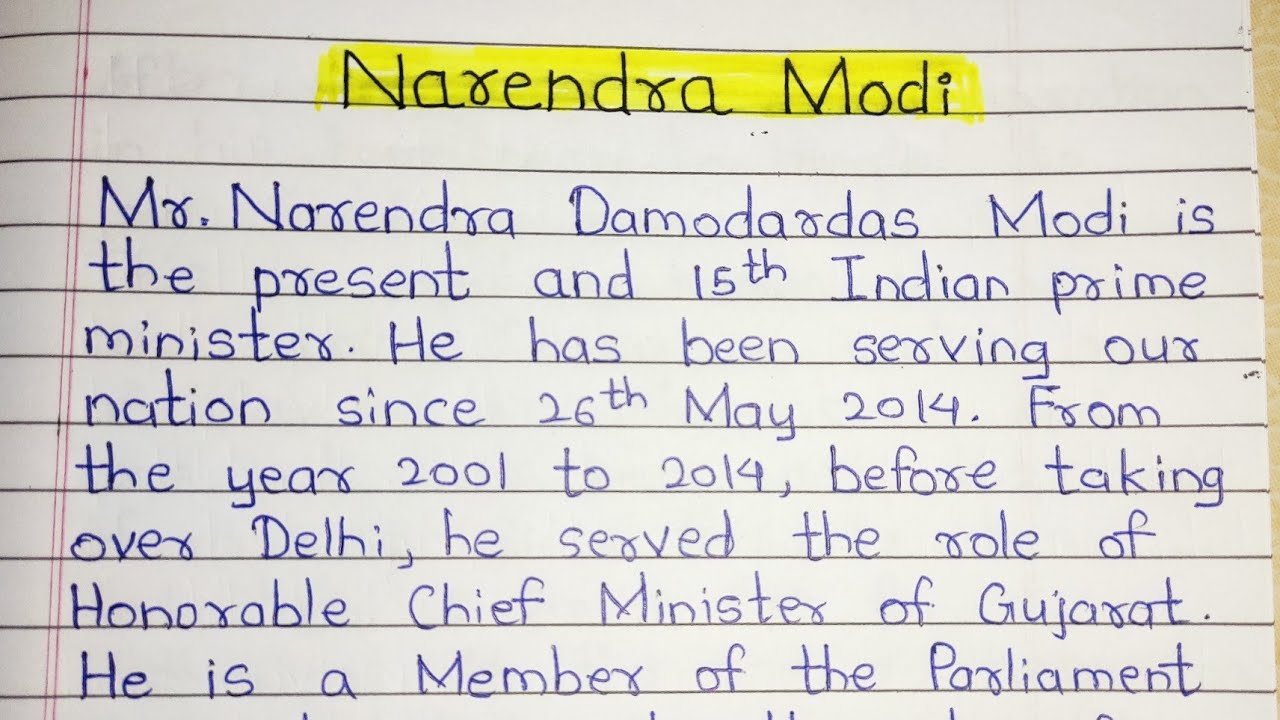 Narendra Modi
Mr. Narendra Damodardas Modi is
the present and 15th Indian prime
minister. He has been serving our
nation since 26th May 2014. From
the year 2001 to 2014, before taking
over Delhi, he served the role of
Honorable Chief Minister of Gujarat.
He is a Member of the Parliament